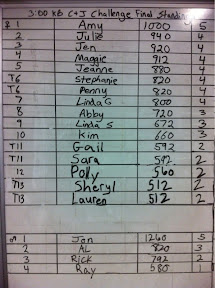 3:00 KB C&J Challenge Final Standing
# 1 Amy 1000 5
2 Julie 940 4
3 Jen 920 4
4 Maggie 912 4
5 Jeanne 880 4
T6 Stephanie 820 4
T6 Penny 820 4
7 Linda G 800 4
8 Abby 720 3
9 Linda S 672 3
10 Kim 660 3
T11 Gail 592 2
T11 Sara 592 2
12 Polly 560 2
T13 Sheryl 512 2
T13 Lauren 512 2
1 Jon 1260 5
2 AL 820 3
3 Rick 792 2
4 Ray 580 1